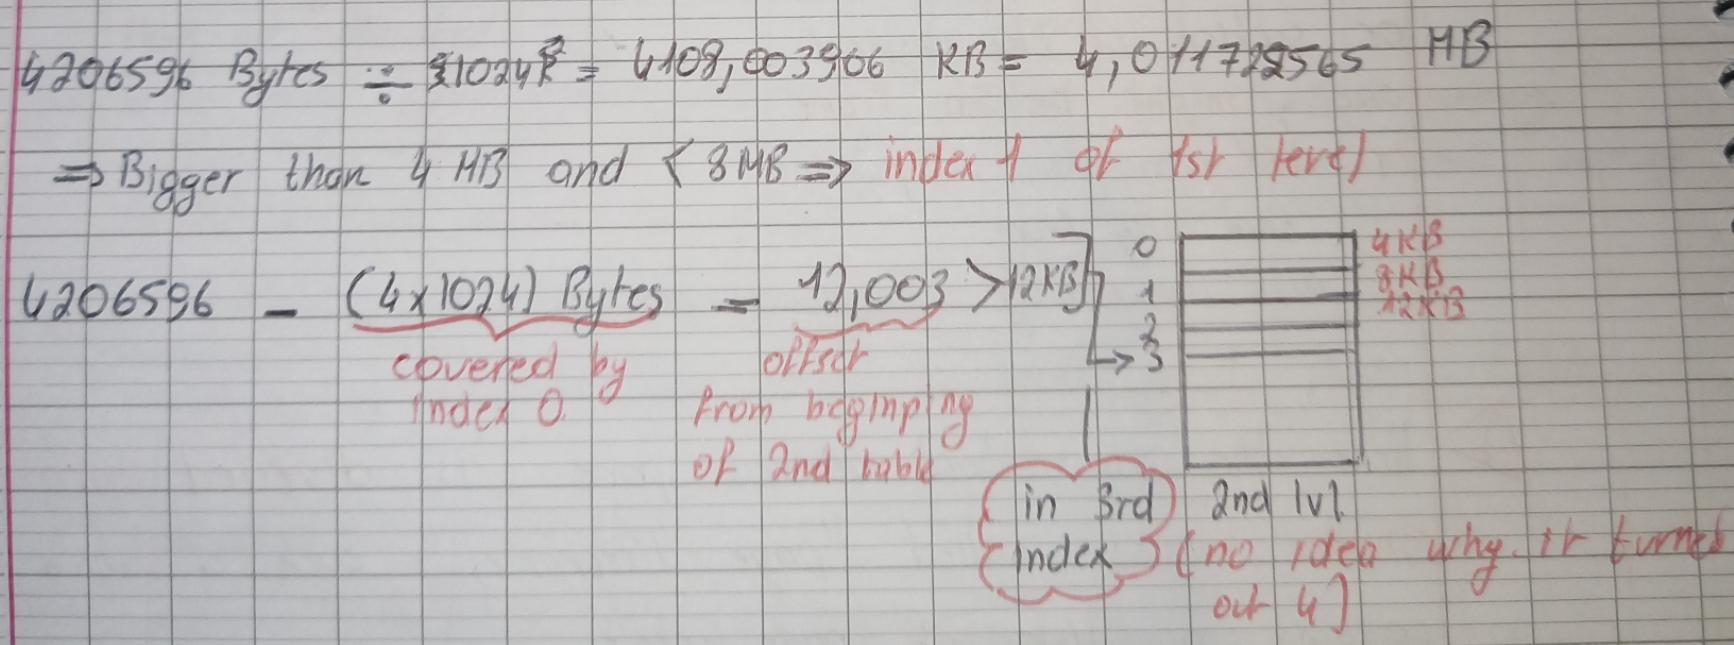 4206596 Bytes ÷ 1024 = 4108,003906 KB = 4,011722565 MB
⇒ Bigger than 4 MB and < 8MB ⇒ index 1 of 1st level
4206596 - (4x1024) Bytes = 12,003 > 12KB
0
1
2
3
4KB
8KB
12KB
covered by
index 0.
offset
from beginning
of 2nd table
in 3rd
index
2nd lvl.
(no idea why it turned
out 4)